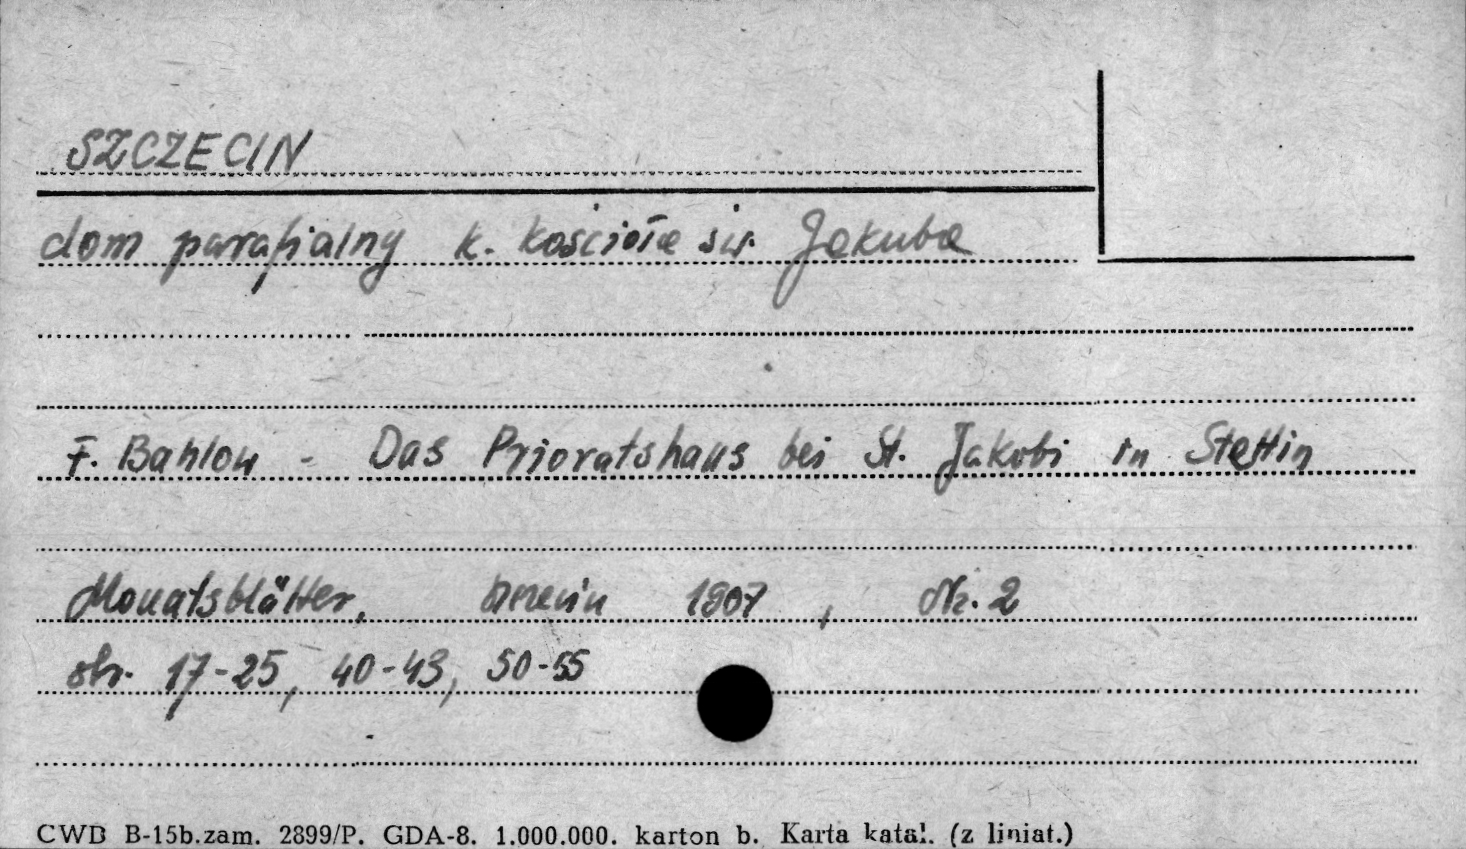 SZCZECIN
dom parafialny k. kościoła św. Jakuba
F. Bahlow - Das Prioratshaus bei St. Jakobi in Stettin
Monatsblätter, 1907, Nr. 2
str. 17-25, 40-43, 50-55
CWD B-15b.zam. 2899/P. GDA-8. 1.000.000. karton b. Karta katal. (z liniat.)